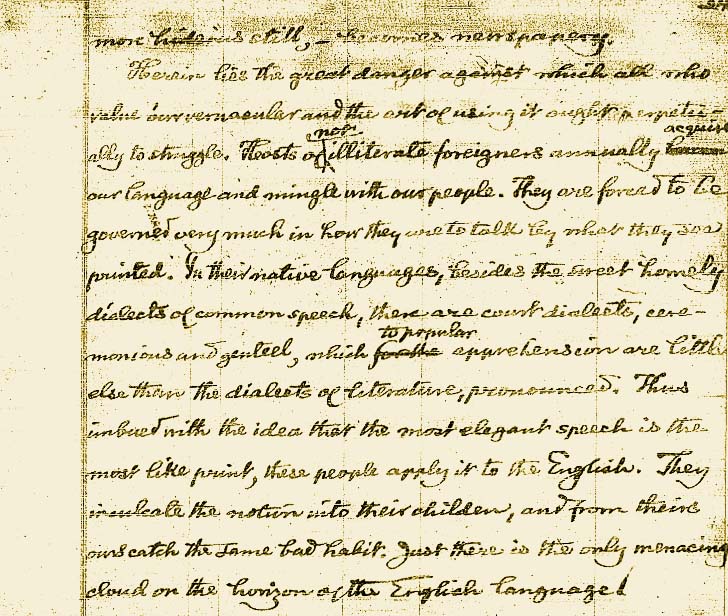 more hideous still, — becomes newspapery.
Herein lies the great danger against which all who
value our vernacular and the art of using it ought perpetu-
acquire
not
ally to struggle. Hosts of illiterate foreigners annually
our language and mingle with our people. They are forced to be
governed very much in how they are to talk by what they see
printed. In their native languages, besides the sweet homely
dialects of common speech, there are court dialects, cere-
to popular
monious and genteel, which for the apprehension are little
else than the dialects of literature, pronounced. Thus
imbued with the idea that the most elegant speech is the
most like print, these people apply it to the English. They
inculcate the notion into their children, and from theirs
ours catch the same bad habit. Just there is the only menacing
cloud on the horizon of the English language!